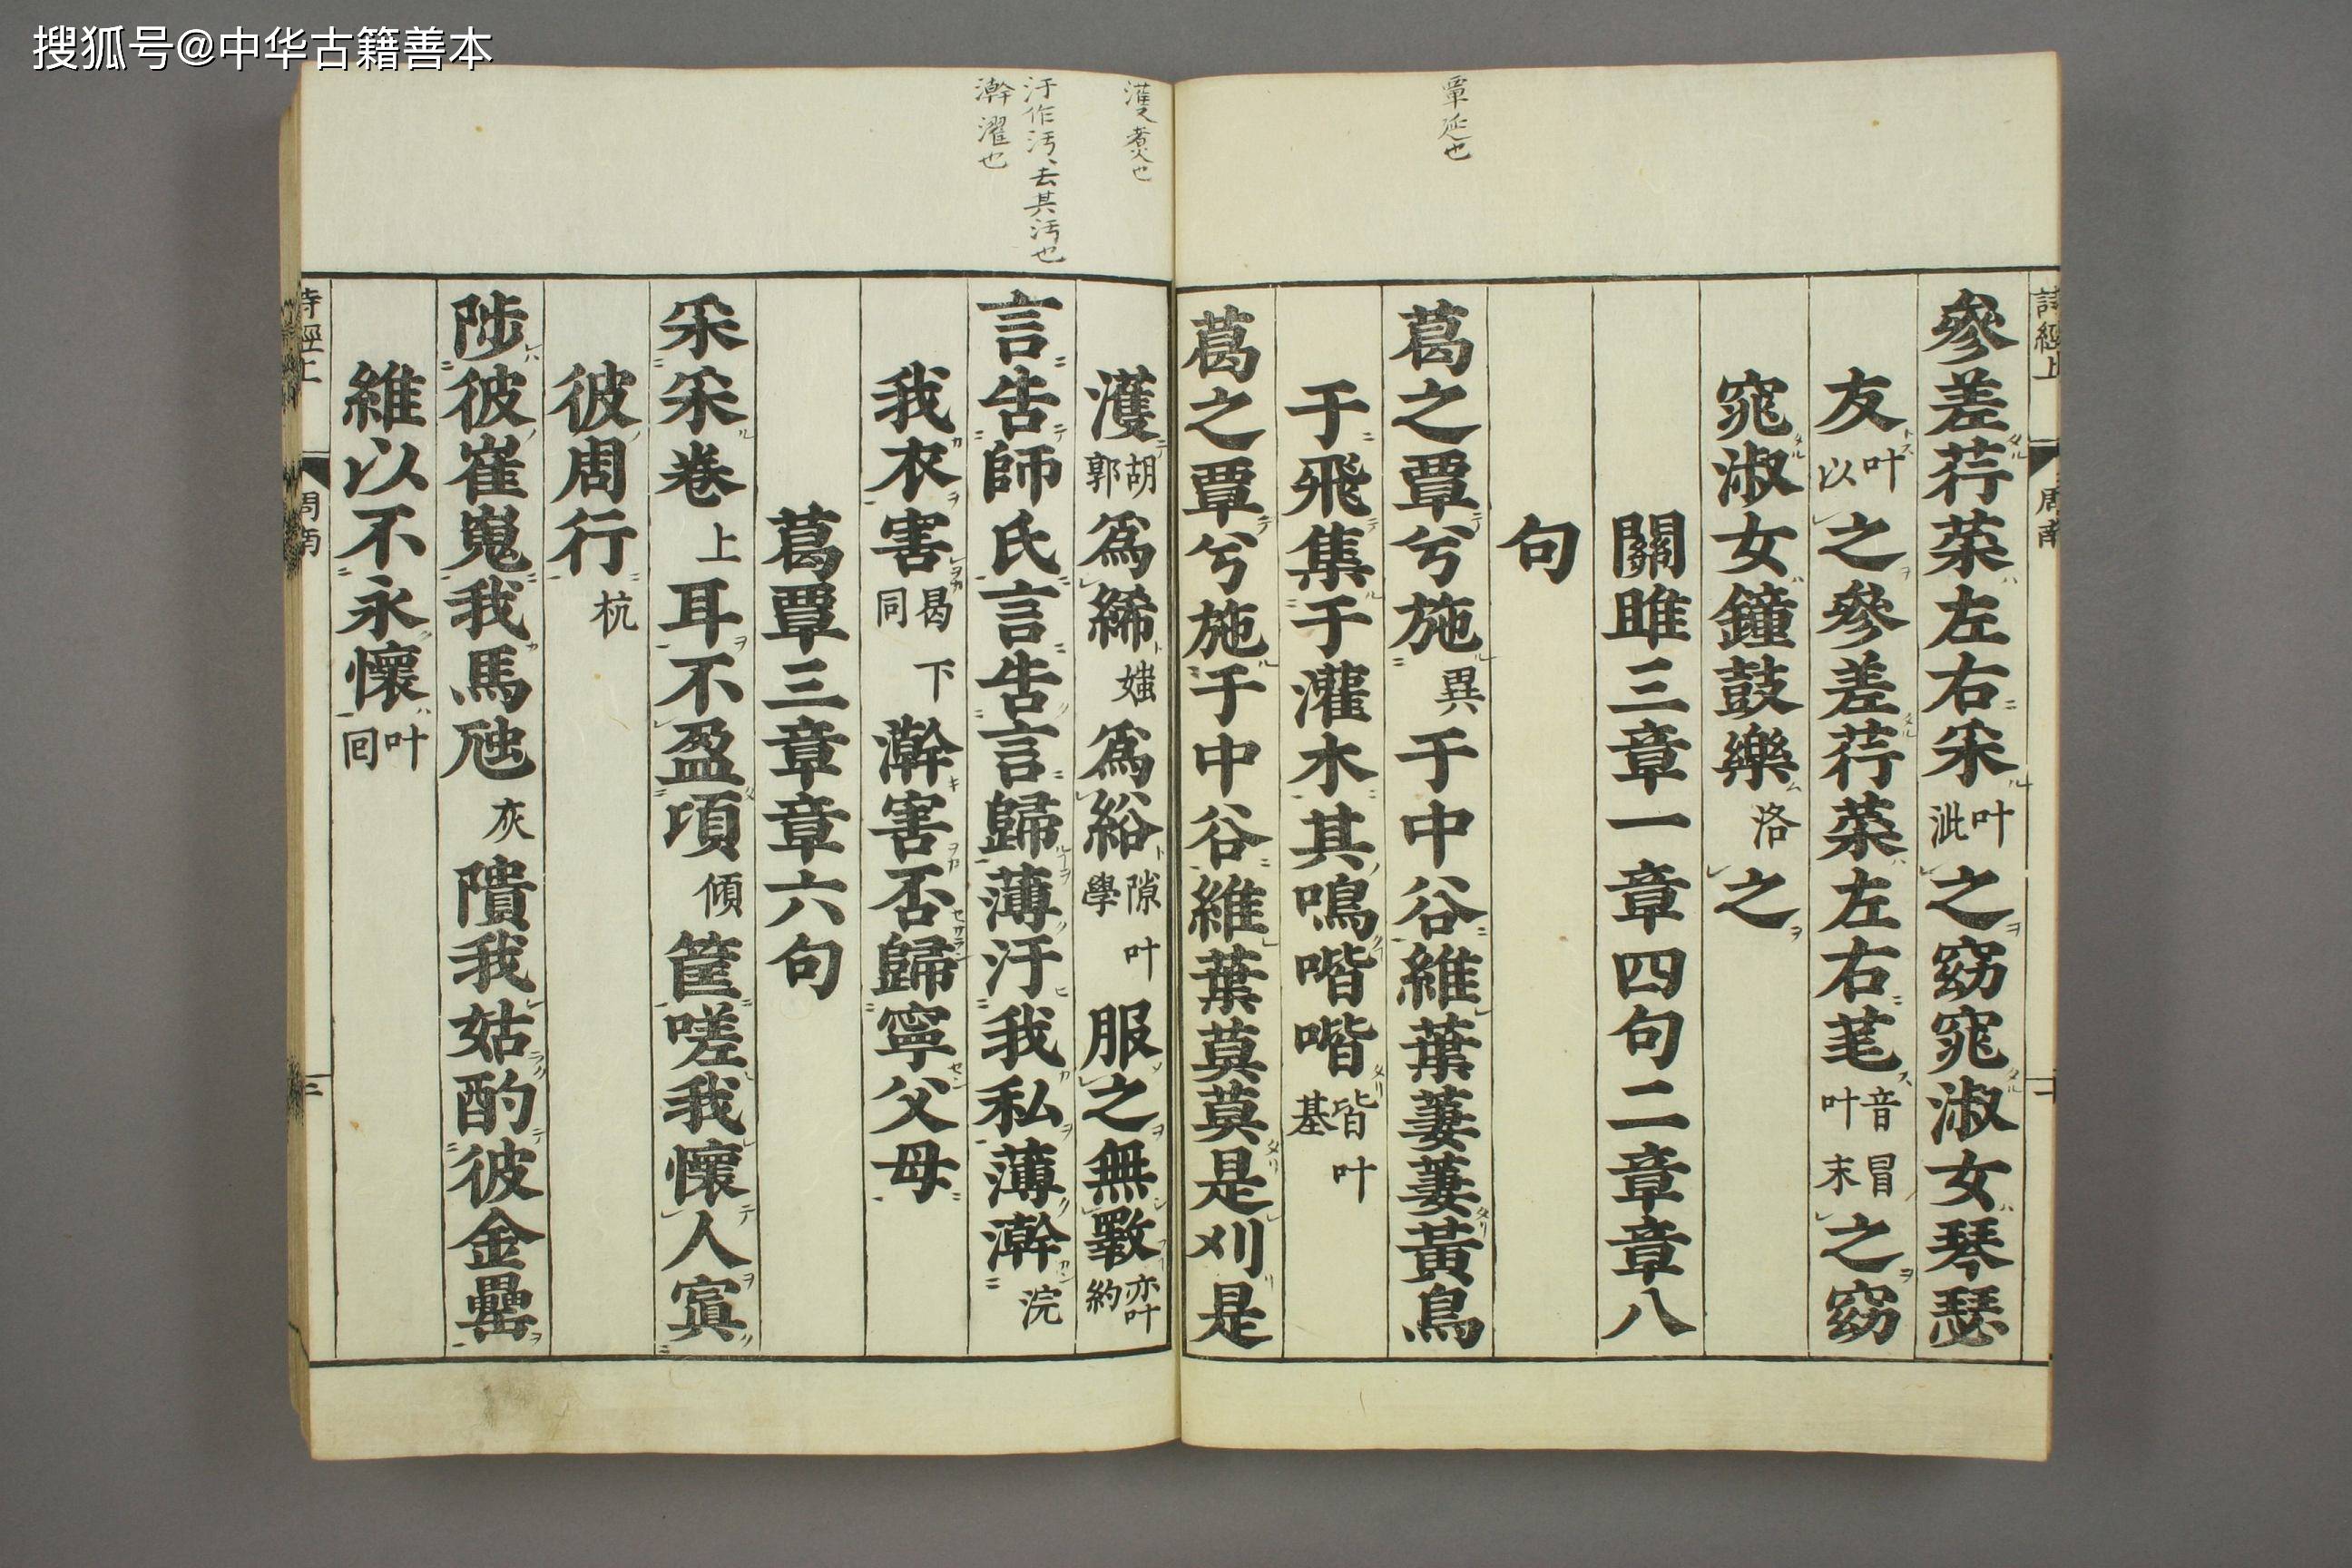 搜狐号@中华古籍善本
覃延也
濩煮也
汙作汚、去其汚也
澣濯也
詩經上 周南 二
參差荇菜左右采叶泚之窈窕淑女琴瑟
友叶以之參差荇菜左右芼音冒叶末之窈
窕淑女鐘鼓樂洛之
關雎三章一章四句二章章八
句
葛之覃兮施異于中谷維葉萋萋黃鳥
于飛集于灌木其鳴喈喈皆叶基
葛之覃兮施于中谷維葉莫莫是刈是
濩胡郭爲絺㛤爲綌隙叶學服之無斁亦叶約
言告師氏言告言歸薄汙我私薄澣浣
我衣害曷同下澣害否歸寧父母
葛覃三章章六句
采采卷上耳不盈頃傾筐嗟我懷人寘
彼周行杭
陟彼崔嵬我馬虺灰隤我姑酌彼金罍
維以不永懷叶回
詩經上 周南